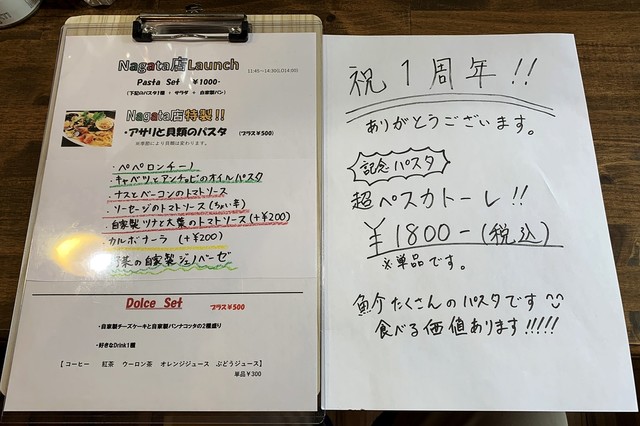 Nagata店Launch
11:45～14:30(LO14:00)
Pasta Set ¥1000-
(下記のパスタ1種 + サラダ + 自家製パン)
Nagata店特製!!
・アサリと貝類のパスタ (プラス¥500)
※季節により貝類は変わります。
・ペペロンチーノ
・キャベツとアンチョビのオイルパスタ
・ナスとベーコンのトマトソース
・ソーセージのトマトソース(ちょい辛)
・自家製ツナと大葉のトマトソース(+¥200)
・カルボナーラ (+¥200)
菜の自家製ジェノベーゼ
Dolce Set プラス¥500
・自家製チーズケーキと自家製パンナコッタの2種盛り
・好きなDrink1種
【 コーヒー 紅茶 ウーロン茶 オレンジジュース ぶどうジュース】
単品¥300
祝1周年!!
ありがとうございます。
記念パスタ
超ペスカトーレ!!
¥1800-(税込)
※単品です。
魚介たくさんのパスタです
食べる価値あります!!!!!